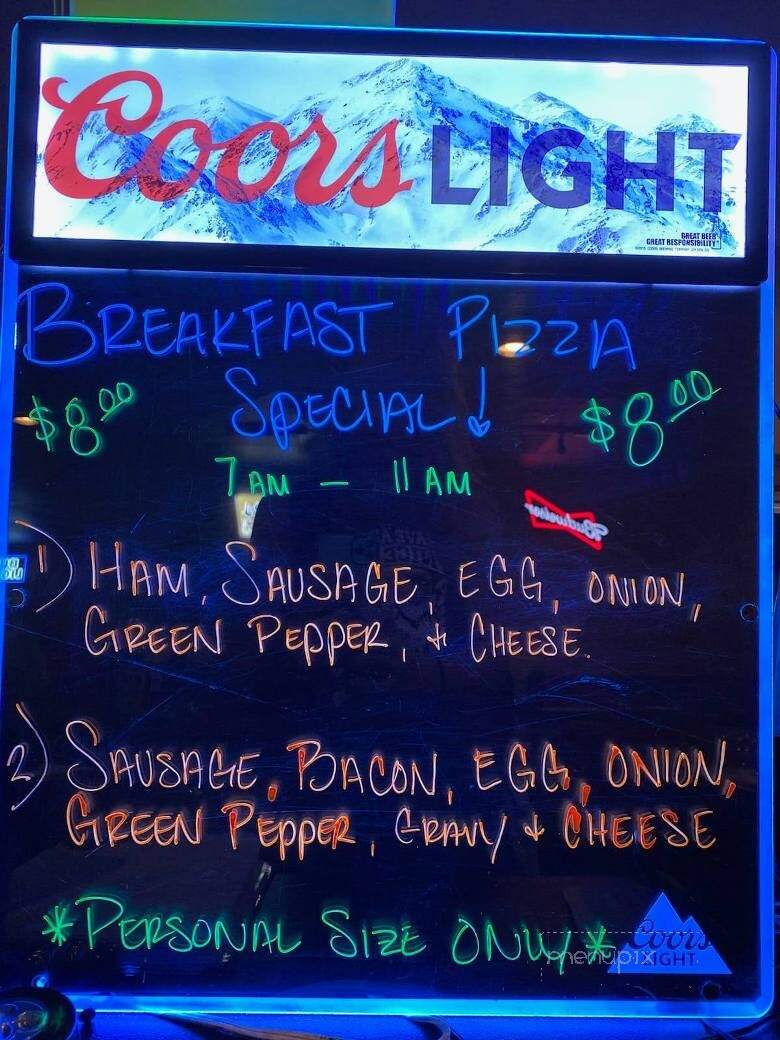 Coors LIGHT
GREAT BEER
GREAT RESPONSIBILITY
BREAKFAST PIZZA
$8.00 SPECIAL! $8.00
7 AM – 11 AM
Budweiser
1) HAM, SAUSAGE, EGG, ONION,
GREEN PEPPER, + CHEESE.
2) SAUSAGE, BACON, EGG, ONION,
GREEN PEPPER, GRAVY + CHEESE
*PERSONAL SIZE ONLY*
Coors
LIGHT
menupix